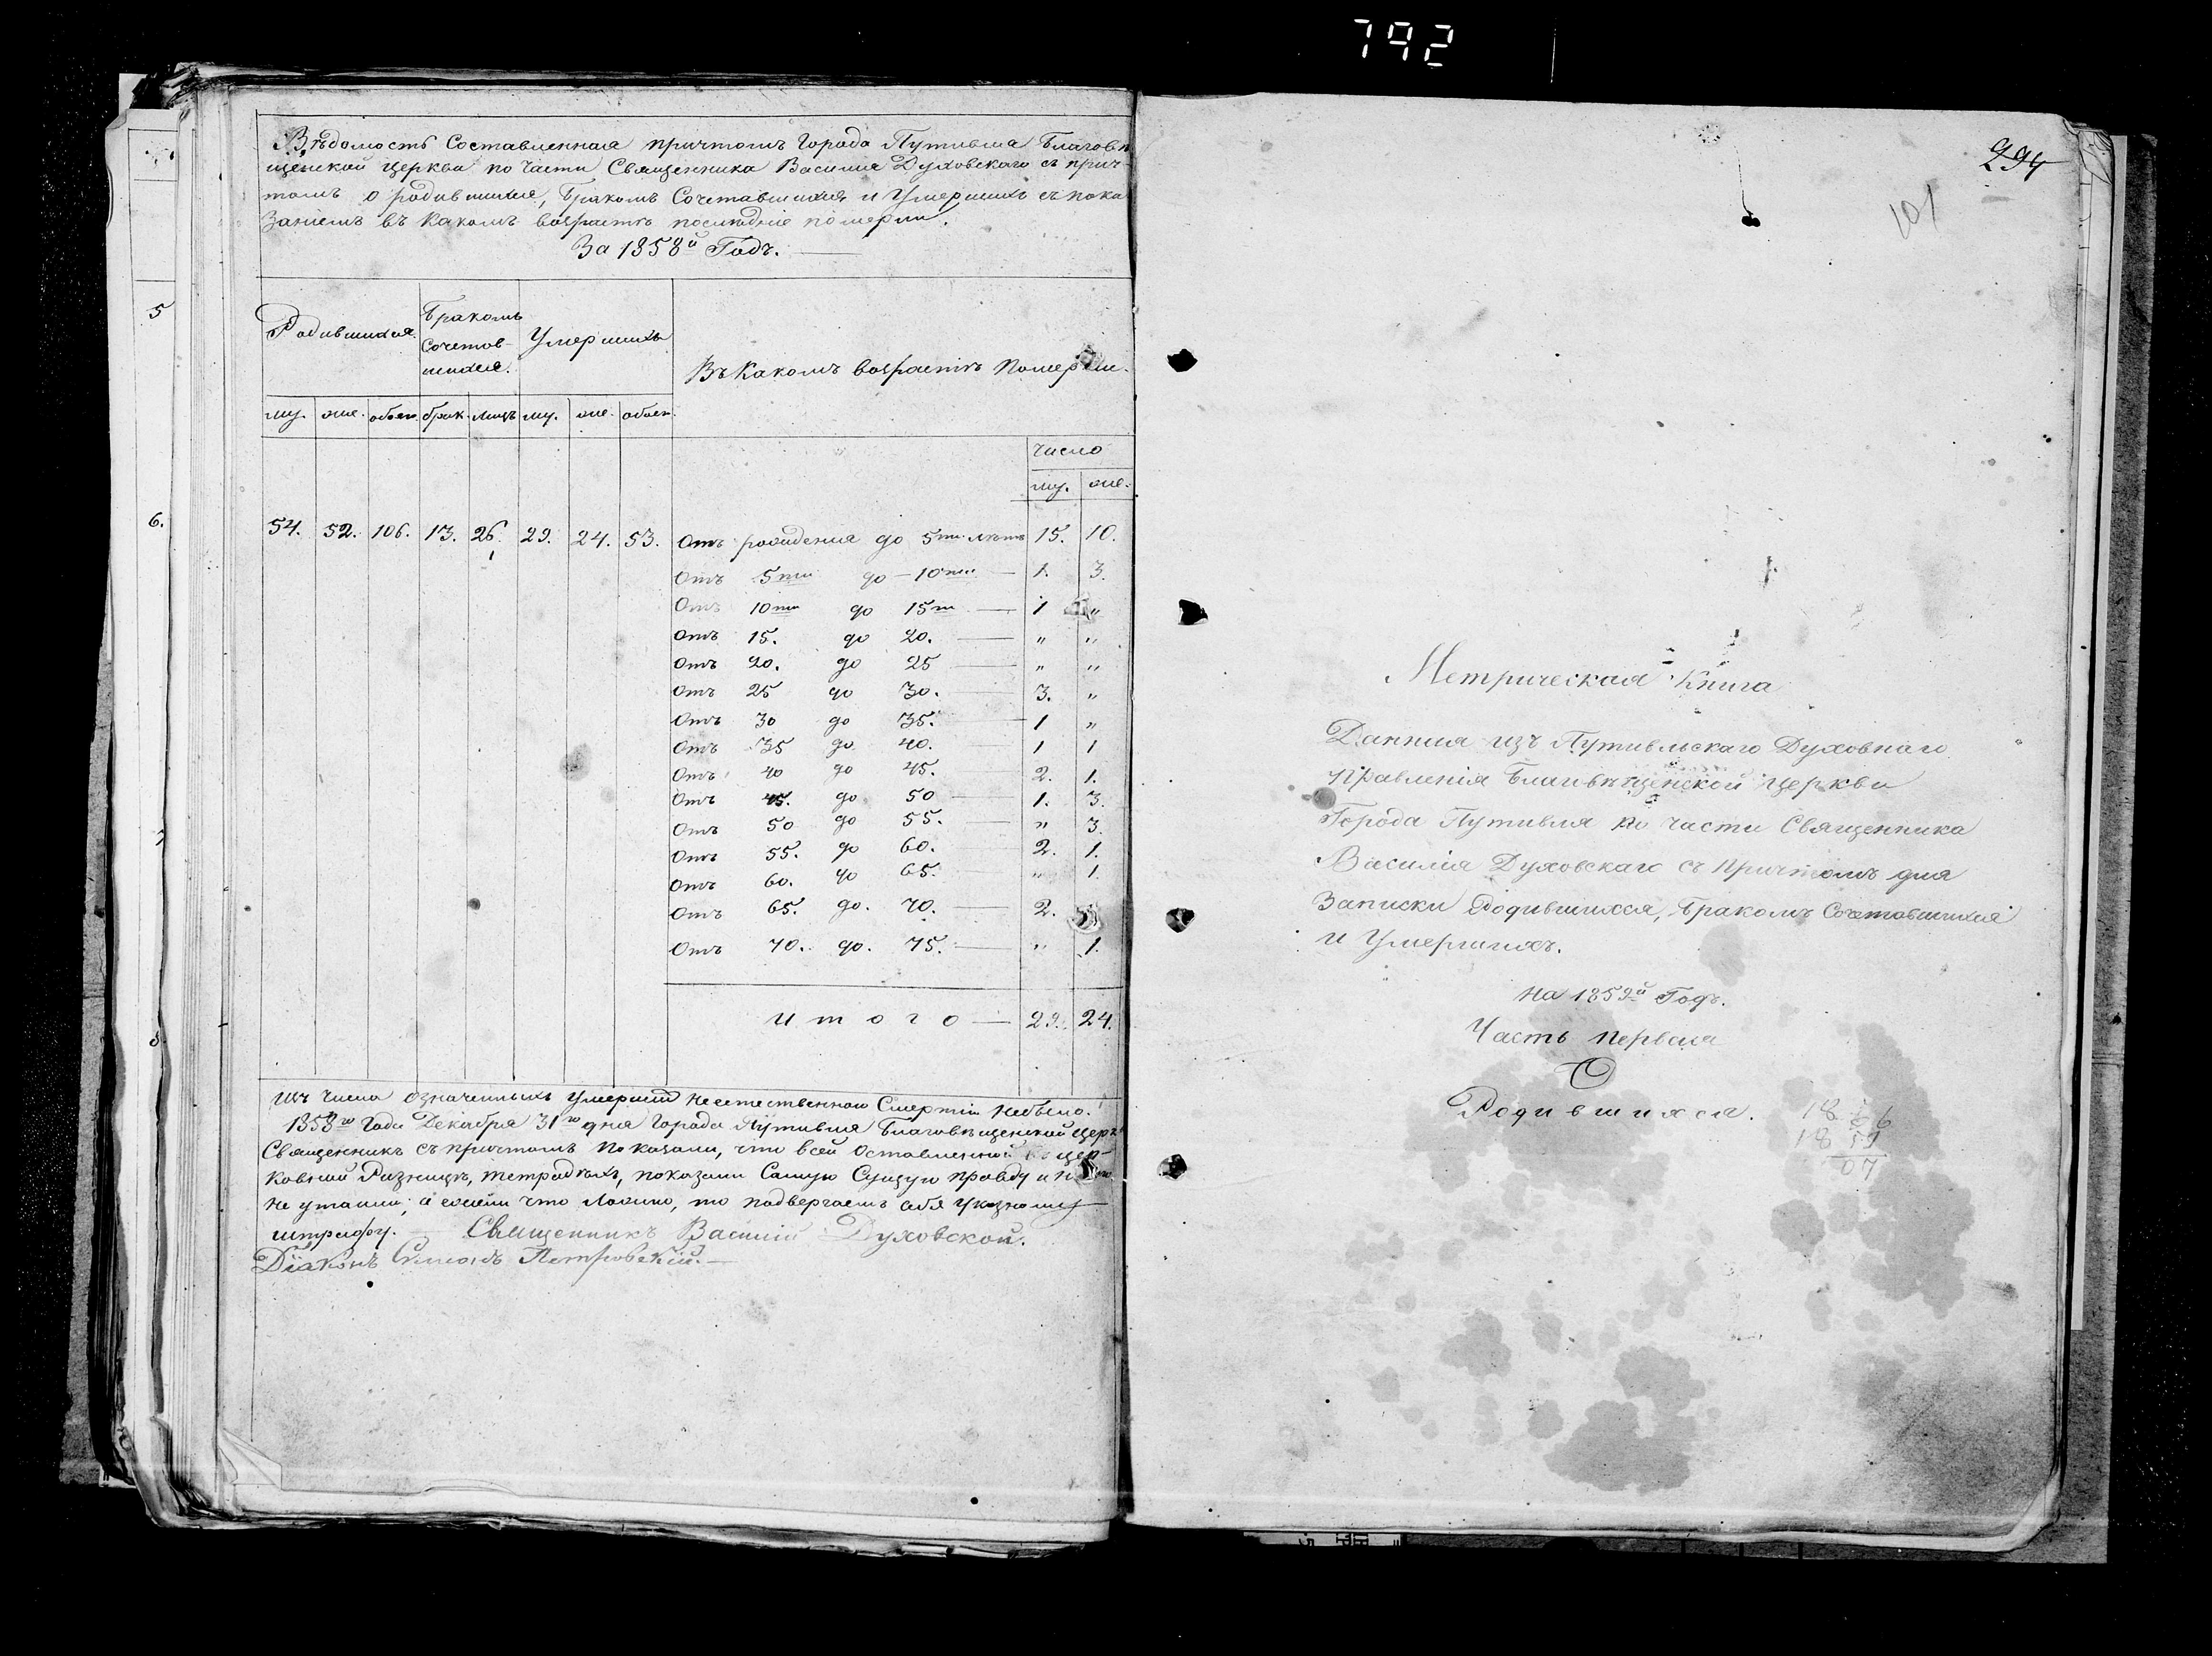 792
Вѣдомость Составленная причтомъ Города Путивля Благовѣ
щенской Церкви по Части Священника Василія Духовскаго съ прич-
томъ о родившихся, Бракомъ Сочетавшихся и Умершихъ съ пока
заніемъ въ какомъ возрастѣ послѣдніе померли.
За 1858й Годъ.
Родившихся. Бракомъ Сочетав- шихся. Умершихъ Въ Какомъ возрастѣ Померли.
му. же. обоег. брак. лицъ му. же. обоег.
число
му. же.
54. 52. 106. 13. 26. 29. 24. 53. Отъ рожденія до 5ти лѣтъ 15. 10.
Отъ 5ти до 10ти 1. 3.
Отъ 10ти до 15ти 1 „
Отъ 15. до 20. „ „
Отъ 20. до 25 „ „
Отъ 25 до 30. 3. „
Отъ 30 до 35. 1 „
Отъ 35 до 40. 1 1
Отъ 40 до 45. 2. 1.
Отъ 45. до 50 1. 3.
Отъ 50 до 55. „ 3.
Отъ 55. до 60. 2. 1.
Отъ 60. до 65. „ 1.
Отъ 65. до. 70. 2.
Отъ 70. до. 75. „ 1.
Итого 29. 24.
Изъ числа означенныхъ Умершій неестественною Смертію небыло.
1858го Года Декабря 31го дня Города Путивля Благовѣщенской Церк
Священникъ съ причтомъ показали, что всей Оставленной цер-
ковной Ризницѣ, тетрадяхъ, показали Самую Сущую правду и
не утаили; а ежели что ложно, то подвергаемъ себя Указному
штрафу. Священникъ Василій Духовской.
Діаконъ Петровскій.
294
101
Метрическая Книга
Данная изъ Путивльскаго Духовнаго
Правленія Благовѣщенской Церкви
Города Путивля по части Священника
Василія Духовскаго съ Причтомъ для
Записки Родившихся, Бракомъ Сочетавшихся
и Умершихъ.
На 1859й Годъ.
Часть Первая
О
Родившихся.
18 66
18 59
07
5
6.